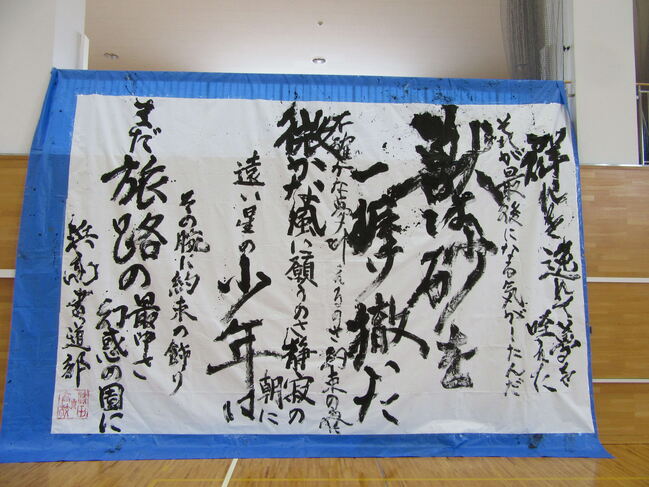 群れを逸れて夢を咥えた
それが最後になる気がしたんだ
獣は砂を
一握り撒いた
不確かな夢叶えるのさ約束の
微かな風に願うのさ静寂の朝に
遠い星の少年は
その腕に約束の飾り
まだ旅路の最中さ
幻惑の園に
書道部